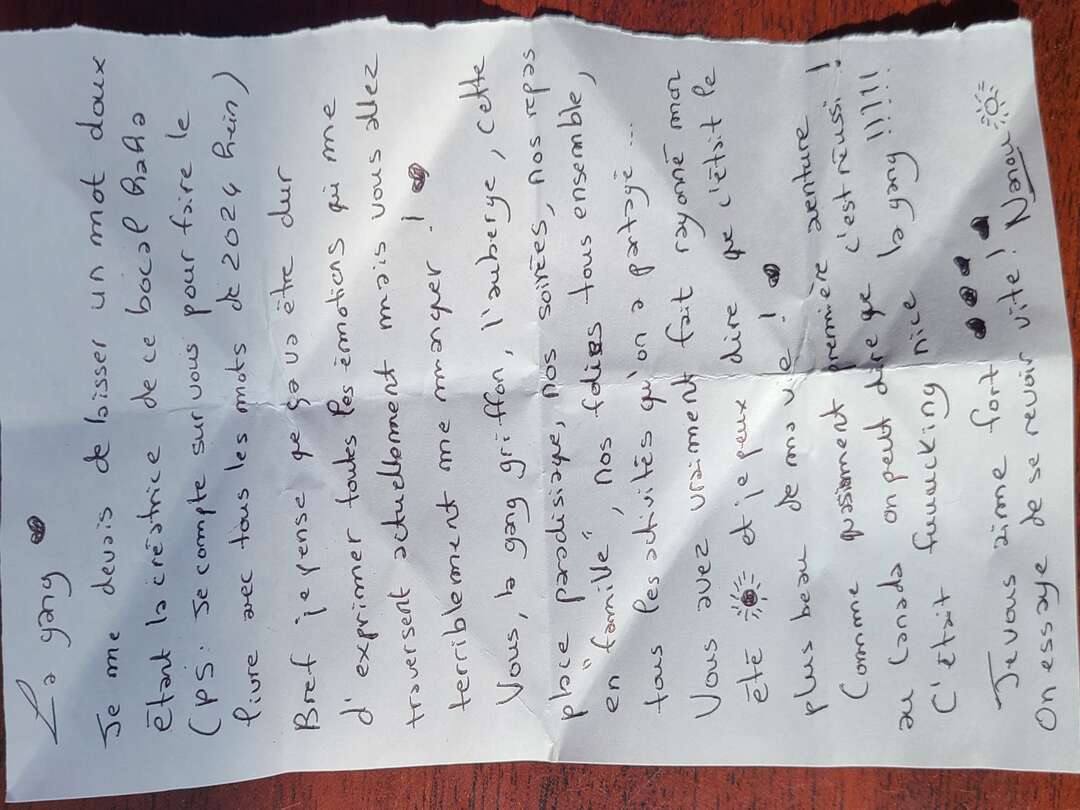 La gang
Je me devais de laisser un mot doux
étant la créatrice de ce bocal haha
(PS: Je compte sur vous pour faire le
livre avec tous les mots de 2024 hein)
Bref je pense que ça va être dur
d'exprimer toutes les émotions qui me
traversent actuellement mais vous allez
terriblement me manquer !
Vous, la gang griffon, l'auberge, cette
place paradisiaque, nos soirées, nos repas
en "famille", nos folies tous ensemble,
tous les activités qu'on a partagé...
Vous avez vraiment fait rayonné mon
été et je peux dire que c'était le
plus beau de ma vie !
Comme quasiment première aventure
au Canada on peut dire que c'est réussi !
C'était fuuucking nice la gang !!!!!
Je vous aime fort
On essaye de se revoir vite ! Nanou